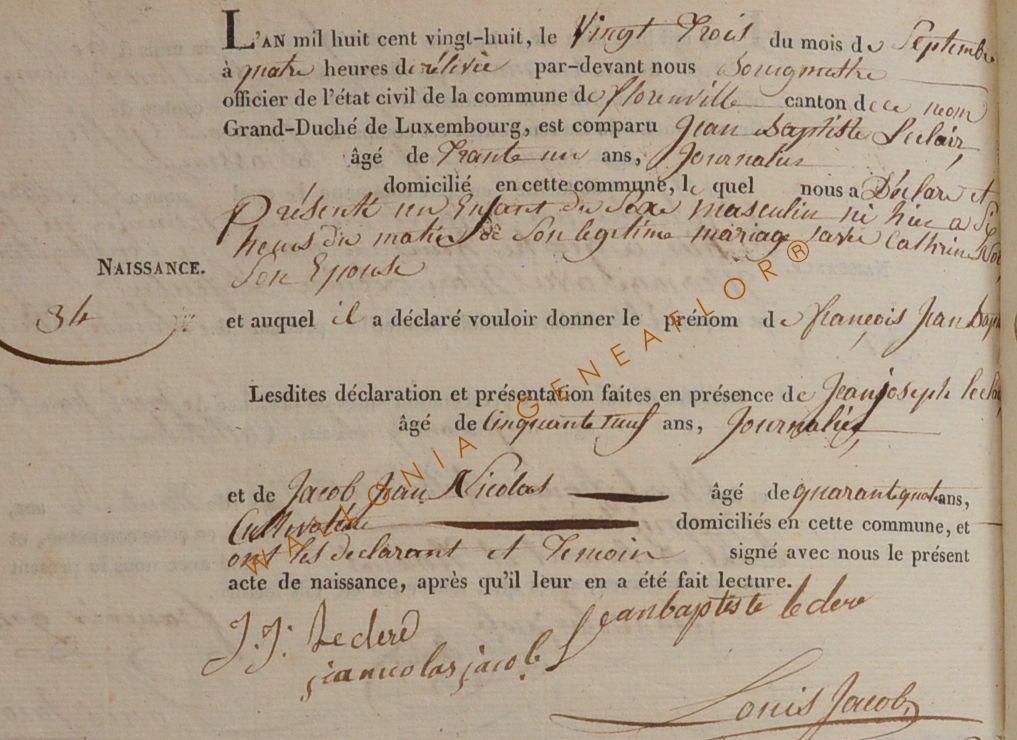 L'AN mil huit cent vingt-huit, le Vingt Trois du mois de Septembre
à quatre heures de rélevée par-devant nous Bourgmestre
officier de l'état civil de la commune de florenville canton de ce nom
Grand-Duché de Luxembourg, est comparu Jean Baptiste Leclair,
âgé de Trante un ans, Journalier
domicilié en cette commune, le quel nous a Déclaré et
Présenté un Enfant du Sexe masculin né hier a Six
heures du matin de Son legitime mariage avec Cathrine
NAISSANCE. Son Epouse
34 et auquel il a déclaré vouloir donner le prénom de françois Jean
Lesdites déclaration et présentation faites en présence de Jean joseph
âgé de Cinquante neuf ans, Journalier,
et de Jacob Jean Nicolas âgé de quarante quatre ans,
domiciliés en cette commune, et
ont les declarant et Temoin signé avec nous le présent
acte de naissance, après qu'il leur en a été fait lecture.
J. J. Leclere Jeanbaptiste leclere
jeannicolas jacob
Louis Jacob
WALLONIA GENEAFLOR®